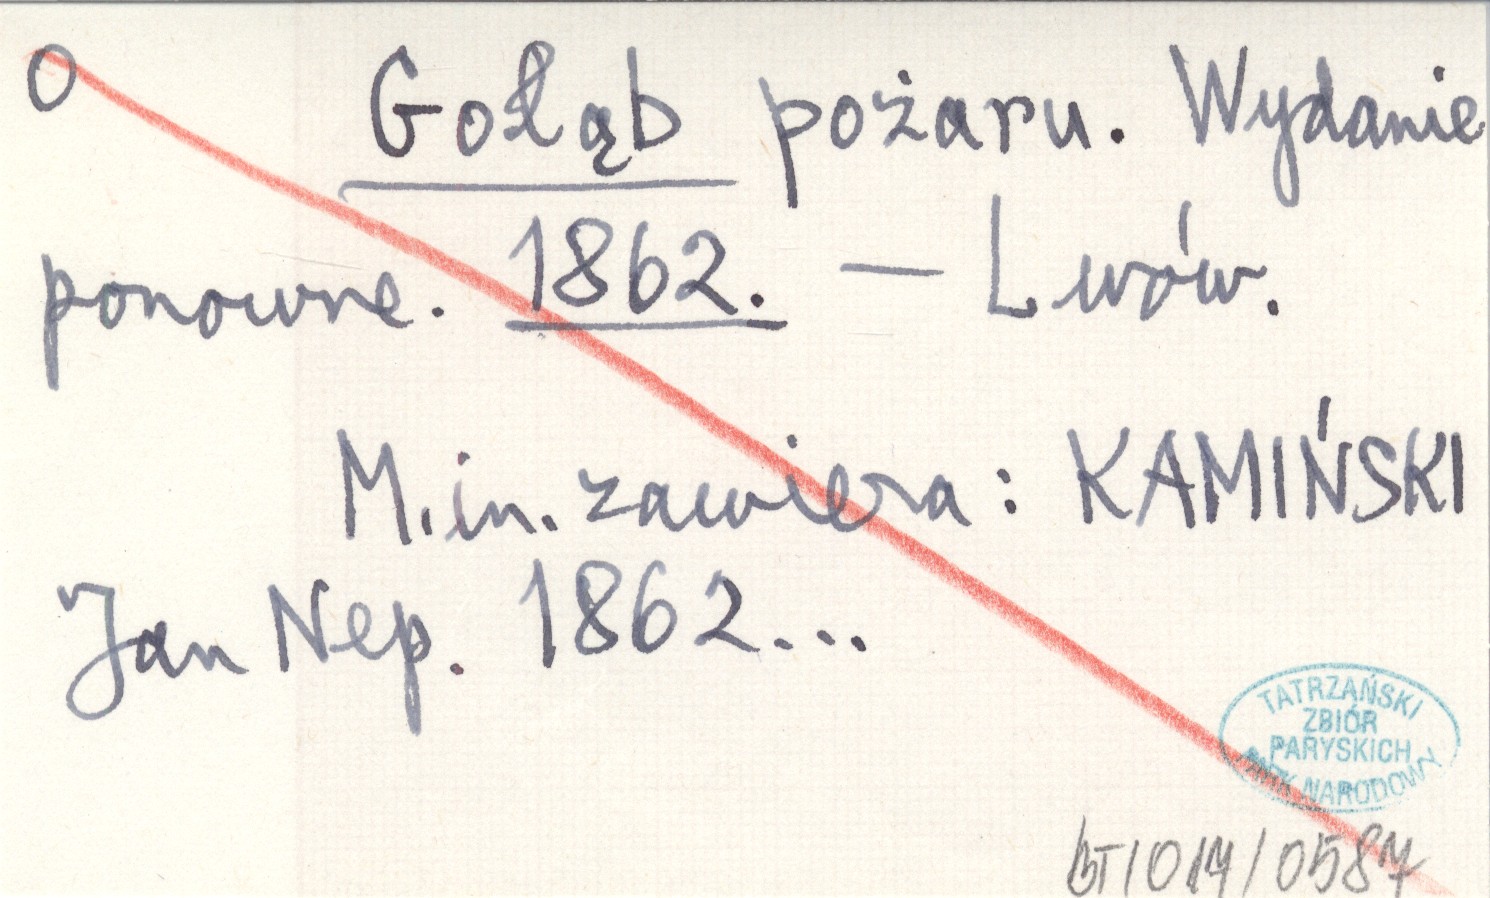 O Gołąb pożaru. Wydanie
ponowne. 1862. — Lwów.
M. in. zawiera: KAMIŃSKI
Jan Nep. 1862...
TATRZAŃSKI
ZBIÓR
PARYSKICH
PARK NARODOWY
BT/017/0587